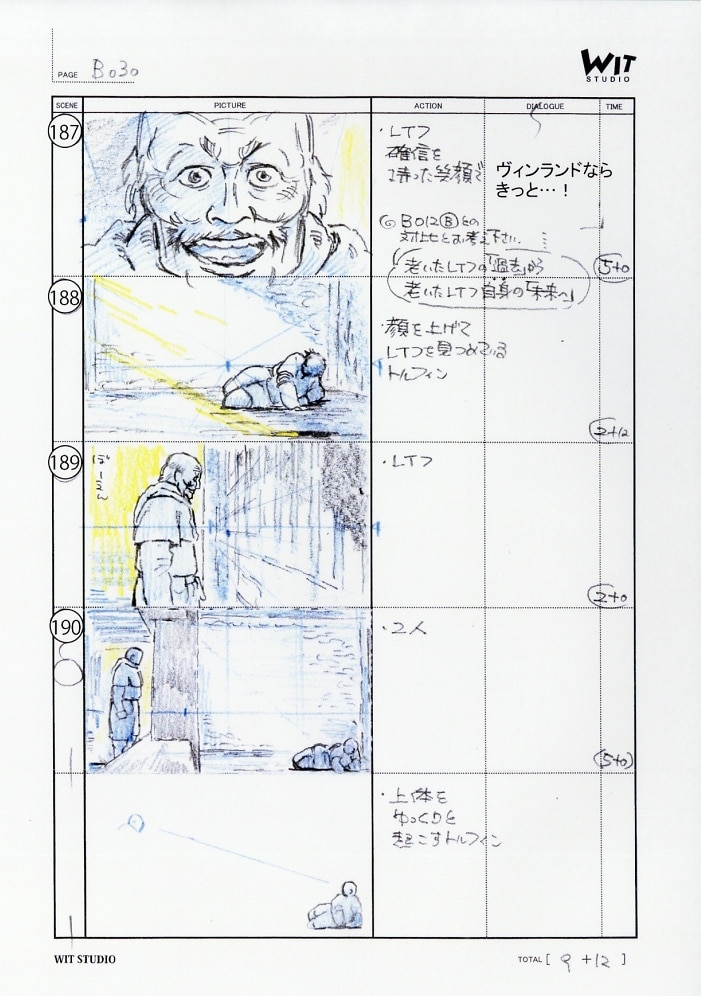 PAGE B030
WIT
STUDIO
SCENE PICTURE ACTION DIALOGUE TIME
187
・レイフ
確信を
持った笑顔で
ヴィンランドなら
きっと…！
◎B012Ⓑとの
対比とお考え下さい
老いたレイフの「過去」から
老いたレイフ自身の「未来へ」
5+0
188
・顔を上げて
レイフを見つめている
トルフィン
2+12
189
・レイフ
2+0
190
・2人
(5+0)
・上体を
ゆっくりと
起こすトルフィン
WIT STUDIO
TOTAL [ 9 +12 ]